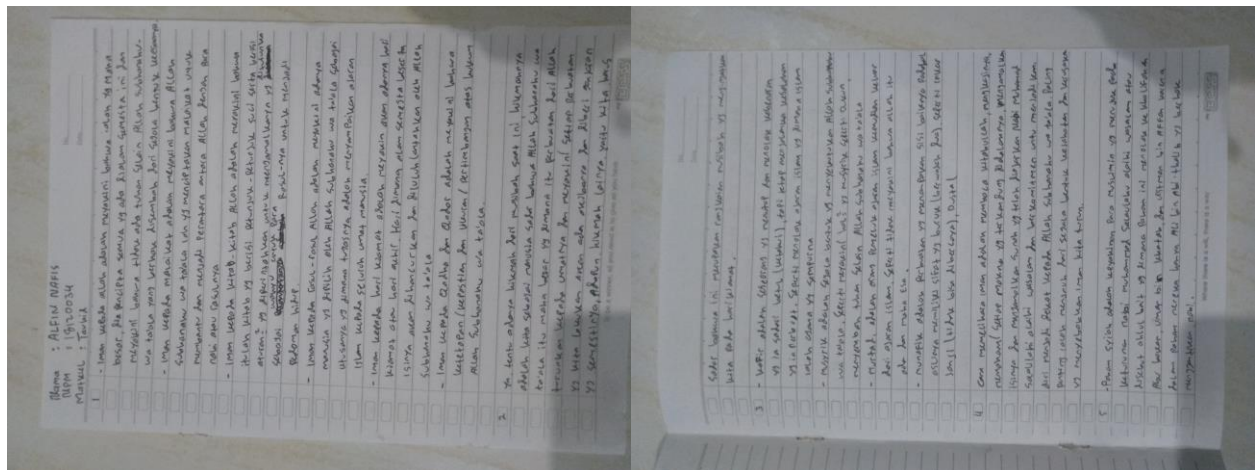 Nama : ALFIN NAFIS
NPM : 19120034
Matkul : Tauhid
1. - Iman kepada Allah adalah meyakini bahwa Allah
besar, Dia Pencipta semua yg ada dialam semesta ini dan
meyakini bahwa tidak ada tuhan selain Allah Subhanahu
wa ta'ala yang berhak disembah dari segala bentuk
- Iman kepada malaikat adalah meyakini bahwa Allah
Subhanahu wa ta'ala lah yg menciptakan malaikat untuk
membantu dan menjadi perantara antara Allah dengan para
nabi atau rasulnya
- Iman kepada kitab-kitab Allah adalah meyakini bahwa
itulah kitab yg berisi petunjuk-petunjuk suci serta berisi
aturan yg diperintahkan untuk mengamalkannya yg
sebagai para Rasul-nya untuk menjadi
Pedoman hidup
- Iman kepada Rasul-rasul Allah adalah meyakini adanya
manusia yg dipilih oleh Allah Subhanahu wa ta'ala sebagai
utusannya yg dimana tugasnya adalah menyampaikan ajaran
Islam kepada seluruh umat manusia
- Iman kepada hari kiamat adalah meyakini akan adanya hari
kiamat atau hari akhir. Hari dimana alam semesta beserta
isinya akan dihancurkan dan diluluhlantahkan oleh Allah
Subhanahu wa ta'ala
- Iman kepada Qadha dan Qadar adalah meyakini bahwa
ketetapan / kepastian dan ukuran / pertimbangan atas hukum
Allah Subhanahu wa ta'ala.
2. Ya tentu adanya hikmah dari musibah saat ini hikmahnya
adalah kita sebagai manusia sadar bahwa Allah Subhanahu wa
ta'ala itu maha besar yg dimana itu perbuatan dari Allah
turunkan kepada umatnya dan meyakini setiap perbuatan
yg kita lakukan akan ada akibatnya dan diberi ganjaran
yg semestinya. Adapun hikmah lainya yaitu kita harus
sadar bahwa ini merupakan ganjaran musibah yg menimpa
kita pada hari kiamat.
3. - Kafir adalah seseorang yg menutup dan menolak kebenaran
yg ia sadari betul (kebenaran), tapi tetap menganggap kebenaran
yg ia peroleh. Seperti menolak ajaran islam yg dimana islam
ialah agama yg sempurna
- Musyrik adalah segala bentuk yg menyekutukan Allah Subhanahu
wa ta'ala. Seperti menyembah hal yg musyrik seperti dukun
menyembah tuhan selain Allah Subhanahu wa ta'ala
- Murtad adalah orang pemeluk agama islam kemudian keluar
dari agama islam. Seperti tidak meyakini bahwa allah itu
ada dan maha esa.
- Munafik adalah perbuatan yg menampakan sisi baiknya padahal
aslinya memiliki sifat yg buruk (bermuka dua) seperti ingkar
janji (tidak bisa dipercaya), Dusta)
4. Cara memelihara iman adalah membaca kitabullah, mengkajinya,
memahami setiap makna yg terkandung didalamnya mengamalkan
isinya dan mengamalkan Sunnah yg telah diajarkan nabi Muhammad
Sallallahi alaihi wasalam dan berkomitmen untuk menjadikan
diri menjadi dekat kepada Allah Subhanahu wa ta'ala. Paling
Penting ialah menjauhi dari segala bentuk maksiat dan kesyirikan
yg menyebabkan iman kita turun.
5. - Paham syiah adalah kepemimpinan para muslimin yg menjadi pada
keturunan nabi Muhammad Salallahu alaihi wasalam atau
disebut ahlul bait yg dimana paham ini menolak ke khalifahan
Abu bakar, Umar bin khattab, dan Utsman bin affan karena
dalam pahaman mereka hanya Ali bin Abi thalib yg berhak
menggantikan nabi.